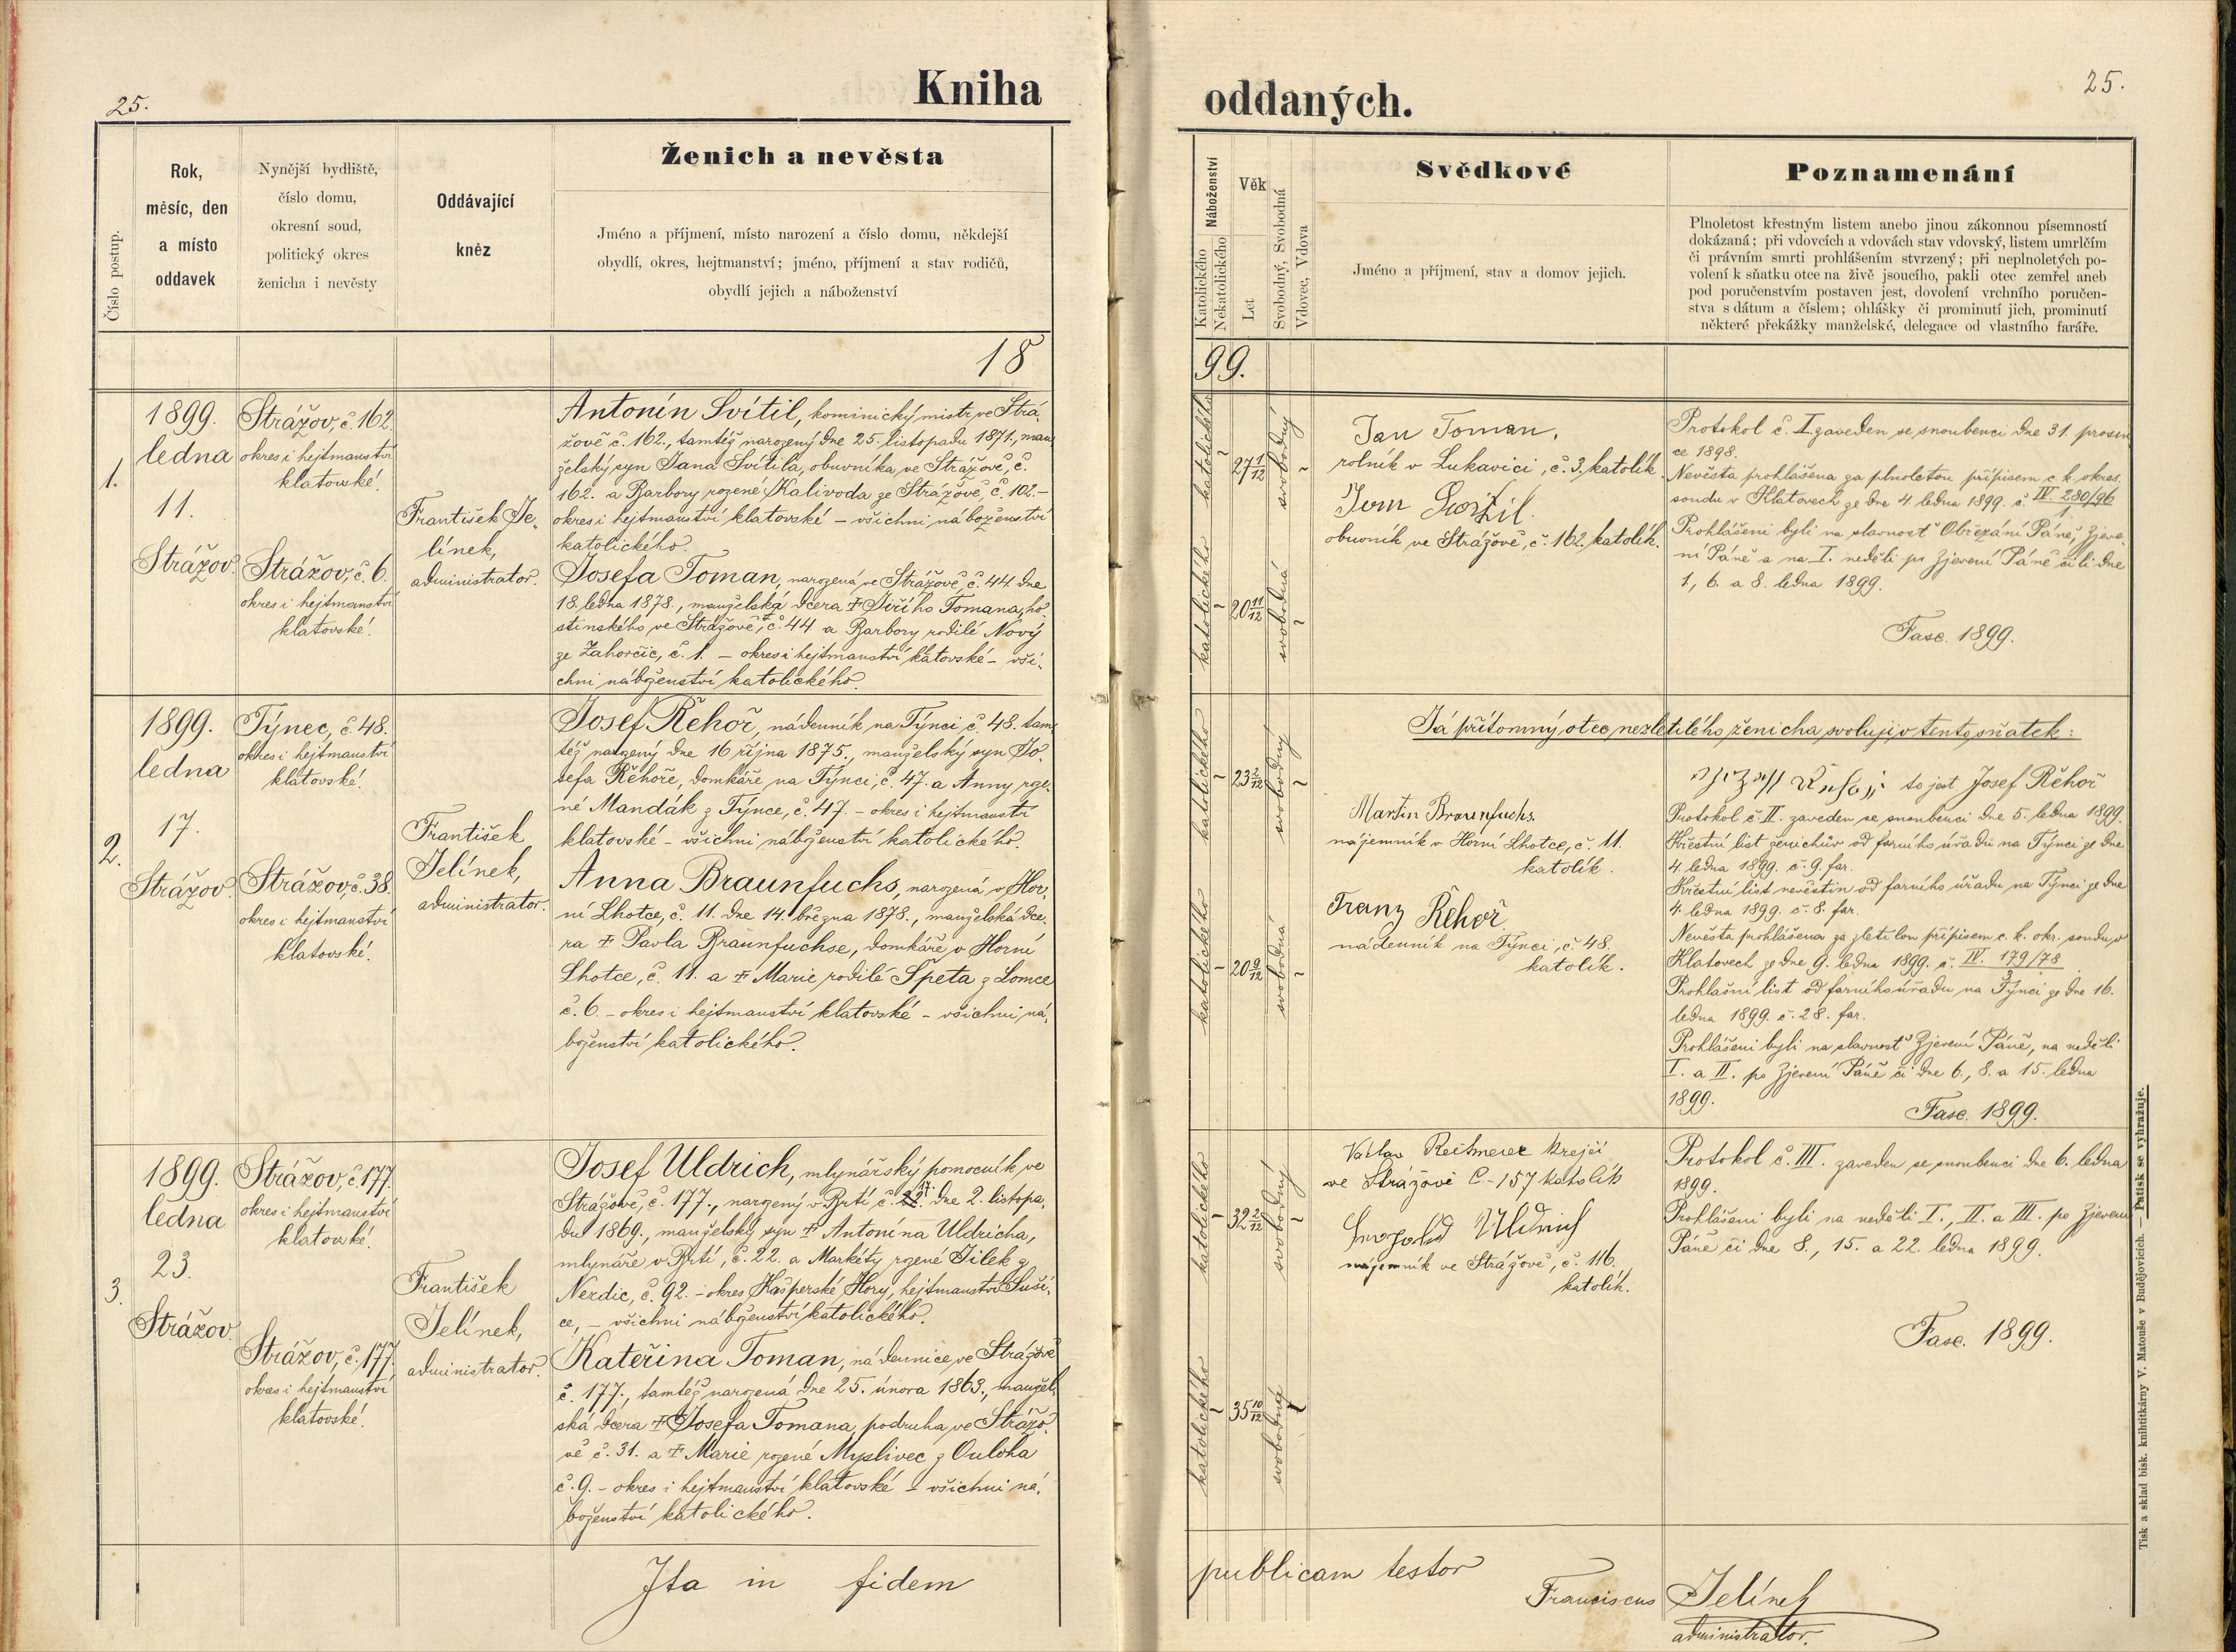 25.
Kniha
Číslo postup.
Rok,
měsíc, den
a místo
oddavek
Nynější bydliště,
číslo domu,
okresní soud,
politický okres
ženicha i nevěsty
Oddávající
kněz
Ženich a nevěsta
Jméno a příjmení, místo narození a číslo domu, někdejší
obydlí, okres, hejtmanství; jméno, příjmení a stav rodičů,
obydlí jejich a náboženství
18
1.
1899.
ledna
11.
Strážov.
Strážov, č. 162.
okres i hejtmanství
klatovské.
Strážov, č. 6.
okres i hejtmanství
klatovské.
František Je-
línek,
administrator.
Antonín Svítil, kominický mistr ve Strá-
žově č. 162., tamtéž narozený dne 25. listopadu 1871., man-
želský syn Jana Svítila, obuvníka, ve Strážově, č.
162. a Barbory rozené Kalivoda ze Strážově, č. 102.-
okres i hejtmanství klatovské - všichni náboženství
katolického.
Josefa Toman, narozená ve Strážově, č. 44 dne
18. ledna 1878., manželská dcera † Jiřího Tomana, ho-
stinského ve Strážově, č. 44 a Barbory rodilé Nový
ze Zahorčic, č. 1. - okres i hejtmanství klatovské - vši-
chni náboženství katolického.
2.
1899.
ledna
17.
Strážov.
Týnec, č. 48.
okres i hejtmanství
klatovské.
Strážov, č. 38.
okres i hejtmanství
klatovské.
František
Jelínek,
administrator.
Josef Řehoř, nádenník na Týnci č. 48. tam-
též narozený dne 16 října 1875., manželský syn Jo-
sefa Řehoře, domkáře na Týnci, č. 47. a Anny roze-
né Mandák z Týnce, č. 47. - okres i hejtmanství
klatovské - všichni náboženství katolického.
Anna Braunfuchs, narozená v Hor-
ní Lhotce, č. 11. dne 14. března 1878., manželská dce-
ra † Pavla Braunfuchse, domkáře v Horní
Lhotce, č. 11. a † Marie rodilé Špeta z Lomce
č. 6. - okres i hejtmanství klatovské - všichni ná-
boženství katolického.
3.
1899.
ledna
23.
Strážov.
Strážov, č. 177.
okres i hejtmanství
klatovské.
Strážov, č. 177.
okres i hejtmanství
klatovské.
František
Jelínek,
administrator.
Josef Uldrich, mlynářský pomocník, ve
Strážově, č. 177., narozený v Brtí, č. 22. 17. dne 2. listopa-
du 1869., manželský syn † Antonína Uldricha,
mlynáře v Brtí, č. 22. a Markéty rozené Jílek z
Nezdic, č. 92. - okres Kašperské Hory, hejtmanství Suši-
ce, - všichni náboženství katolického.
Kateřina Toman, nádennice, ve Strážově
č. 177., tamtéž narozená dne 25. února 1863., manžel-
ská dcera † Josefa Tomana, podruha, ve Strážo-
vě č. 31. a † Marie rozené Myslivec z Ouloha
č. 9. - okres i hejtmanství klatovské - všichni ná-
boženství katolického.
Ita in fidem
25.
oddaných.
Náboženství
Katolického
Nekatolického
Věk
Let
Svobodný, Svobodná
Vdovec, Vdova
Svědkové
Jméno a příjmení, stav a domov jejich.
Poznamenání
Plnoletost křestným listem anebo jinou zákonnou písemností
dokázaná; při vdovcích a vdovách stav vdovský, listem umrlčím
či právním smrti prohlášením stvrzený; při neplnoletých po-
volení k sňatku otce na živě jsoucího, pakli otec zemřel aneb
pod poručenstvím postaven jest, dovolení vrchního poručen-
stva s dátum a číslem; ohlášky či prominutí jich, prominutí
některé překážky manželské, delegace od vlastního faráře.
99.
katolického
27 1/12
svobodný
katolického
20 11/12
svobodná
Jan Toman,
rolník v Lukavici, č. 3, katolík.
obuvník ve Strážově, č. 162. katolík.
Protokol č. I. zaveden se snoubenci dne 31. prosin-
ce 1898.
Nevěsta prohlášena za plnoletou přípisem c. k. okres.
soudu v Klatovech ze dne 4. ledna 1899. č. IV. 280/96
1
Prohlášeni byli na slavnosť Obřezání Páně, Zjeve-
ní Páně a na I. neděli po Zjevení Páně čili dne
1, 6. a 8. ledna 1899.
Fasc. 1899.
katolického
23 3/12
svobodný
katolického
20 9/12
svobodná
Já přítomný otec nezletilého ženicha svoluji v tento sňatek:
to jest Josef Řehoř
Martin Braunfuchs.
nájemník v Horní Lhotce, č. 11.
katolík.
Franz Řehoř
nádenník na Týnci, č. 48.
katolík.
Protokol č. II. zaveden se snoubenci dne 5. ledna 1899.
Křestní list ženichův od farního úřadu na Týnci ze dne
4. ledna 1899. č. 9. far.
Křestní list nevěstin od farního úřadu na Týnci ze dne
4. ledna 1899. č. 8. far.
Nevěsta prohlášena za zletilou přípisem c. k. okr. soudu v
Klatovech ze dne 9. ledna 1899. č. IV. 179/78
3
Prohlašní list od farního úřadu na Týnci ze dne 16.
ledna 1899. č. 28. far.
Prohlášeni byli na slavnosť Zjevení Páně, na neděli
I. a II. po Zjevení Páně či dne 6., 8. a 15. ledna
1899.
Fasc. 1899.
katolického
32 2/12
svobodný
katolického
35 10/12
svobodná
krejčí
ve Strážově č-157 katolík
Uldrich
nájemník ve Strážově, č. 116.
katolík.
Protokol č. III. zaveden se snoubenci dne 6. ledna
1899.
Prohlášeni byli na neděli I., II. a III. po Zjevení
Páně či dne 8., 15. a 22. ledna 1899.
Fasc. 1899.
publicam testor
Franciscus Jelínek
administrator.
Tisk a sklad bisk. knihtiskárny V. Matouše v Budějovicích. — Patisk se vyhražuje.